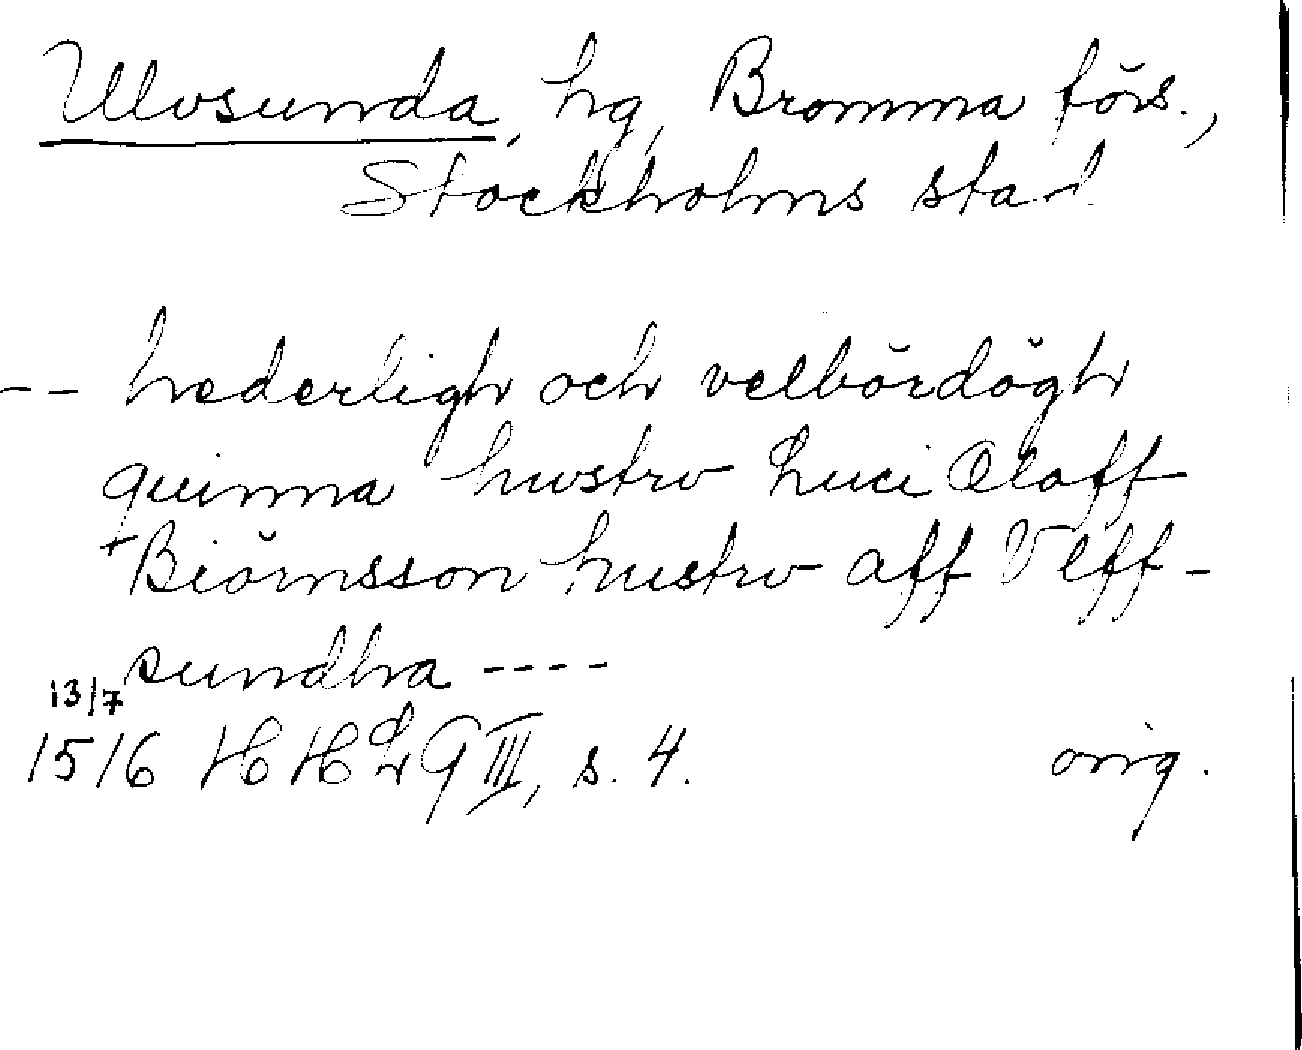 Ulvsunda, hg, Bromma förs.,
Stockholms stad
-- hederligh och velbördögh
quinna hustrv Luci Oloff
+Biörnsson hustrv aff Vlff-
sundha ----
13/7
1516 HHLG III, s. 4. orig.